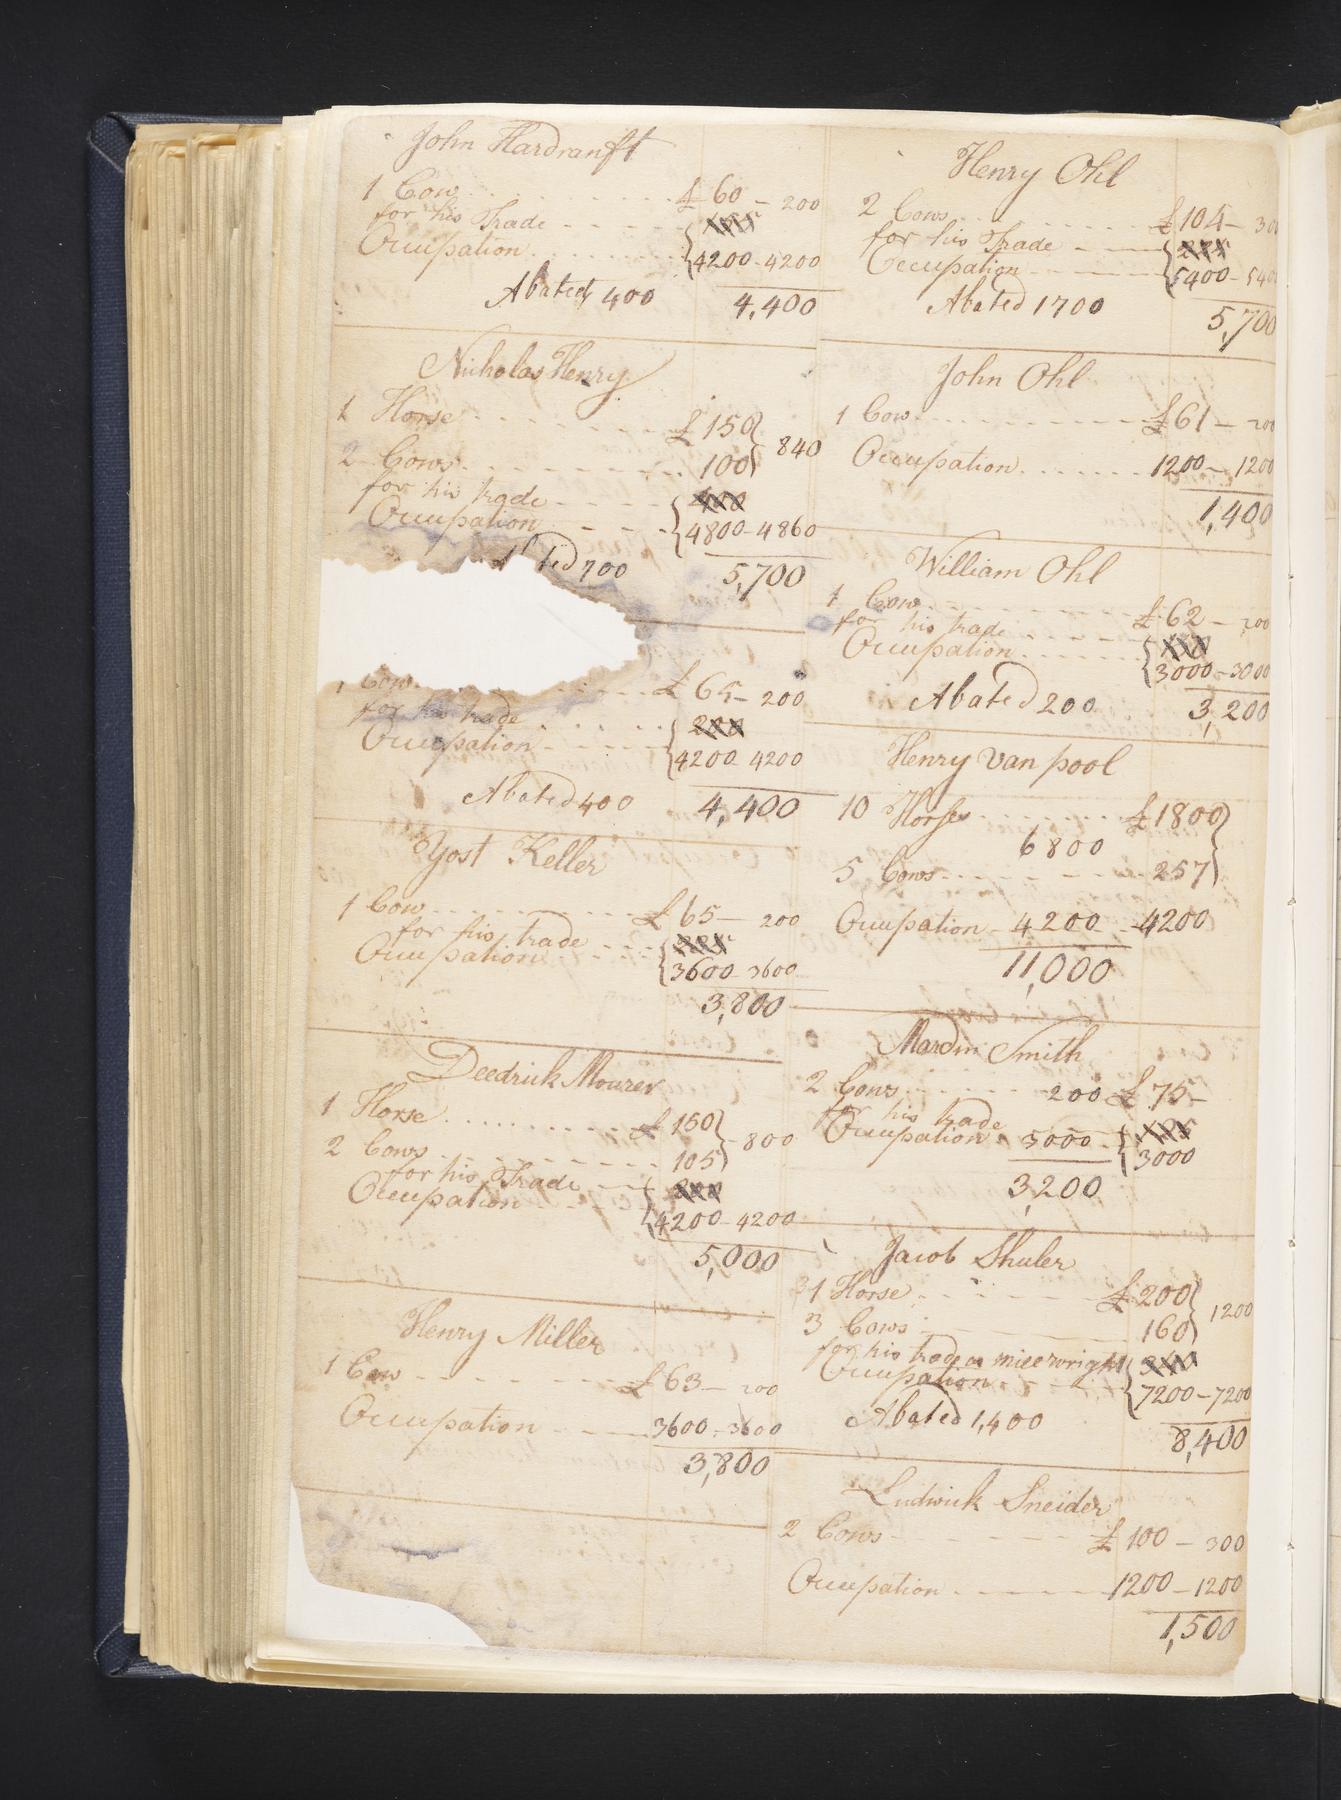 John Hardranft
1 Cow £ 60 - 200
for his Trade
Occupation 4200-4200
Abated 400 4,400
Nicholas Henry
1 Horse £ 150
2 Cows 100 840
for his trade
Occupation 4800-4860
700 5,700
1 Cow £ 65- 200
for his trade
Occupation 4200 4200
Abated 400 4,400
Yost Keller
1 Cow £ 65 - 200
for his trade
Occupation 3600-3600
3,800
Deedrick Mourer
1 Horse £ 150
2 Cows 105 800
for his Trade
Occupation 4200-4200
5,000
Henry Miller
1 Cow £ 63 - 200
Occupation 3600-3600
3,800
Henry Ohl
2 Cows £ 104-
for his Trade
Occupation 5400-
Abated 1700 5,700
John Ohl
1 Cow £ 61 - 200
Occupation 1200-1200
1,400
William Ohl
1 Cow £ 62 - 200
for his trade
Occupation 3000-3000
Abated 200 3,200
Henry Van pool
10 Horses £ 1800
6800
5 Cows 257
Occupation - 4200 - 4200
11,000
Mardin Smith
2 Cows 200 £ 75-
for his trade
Occupation 3000 3000
3,200
Jacob Shuler
1 Horse £ 200
3 Cows 160 1200
for his trade a millwright
Occupation 7200-7200
Abated 1,400 8,400
Ludwick Sneider
2 Cows £ 100 - 300
Occupation 1200-1200
1,500